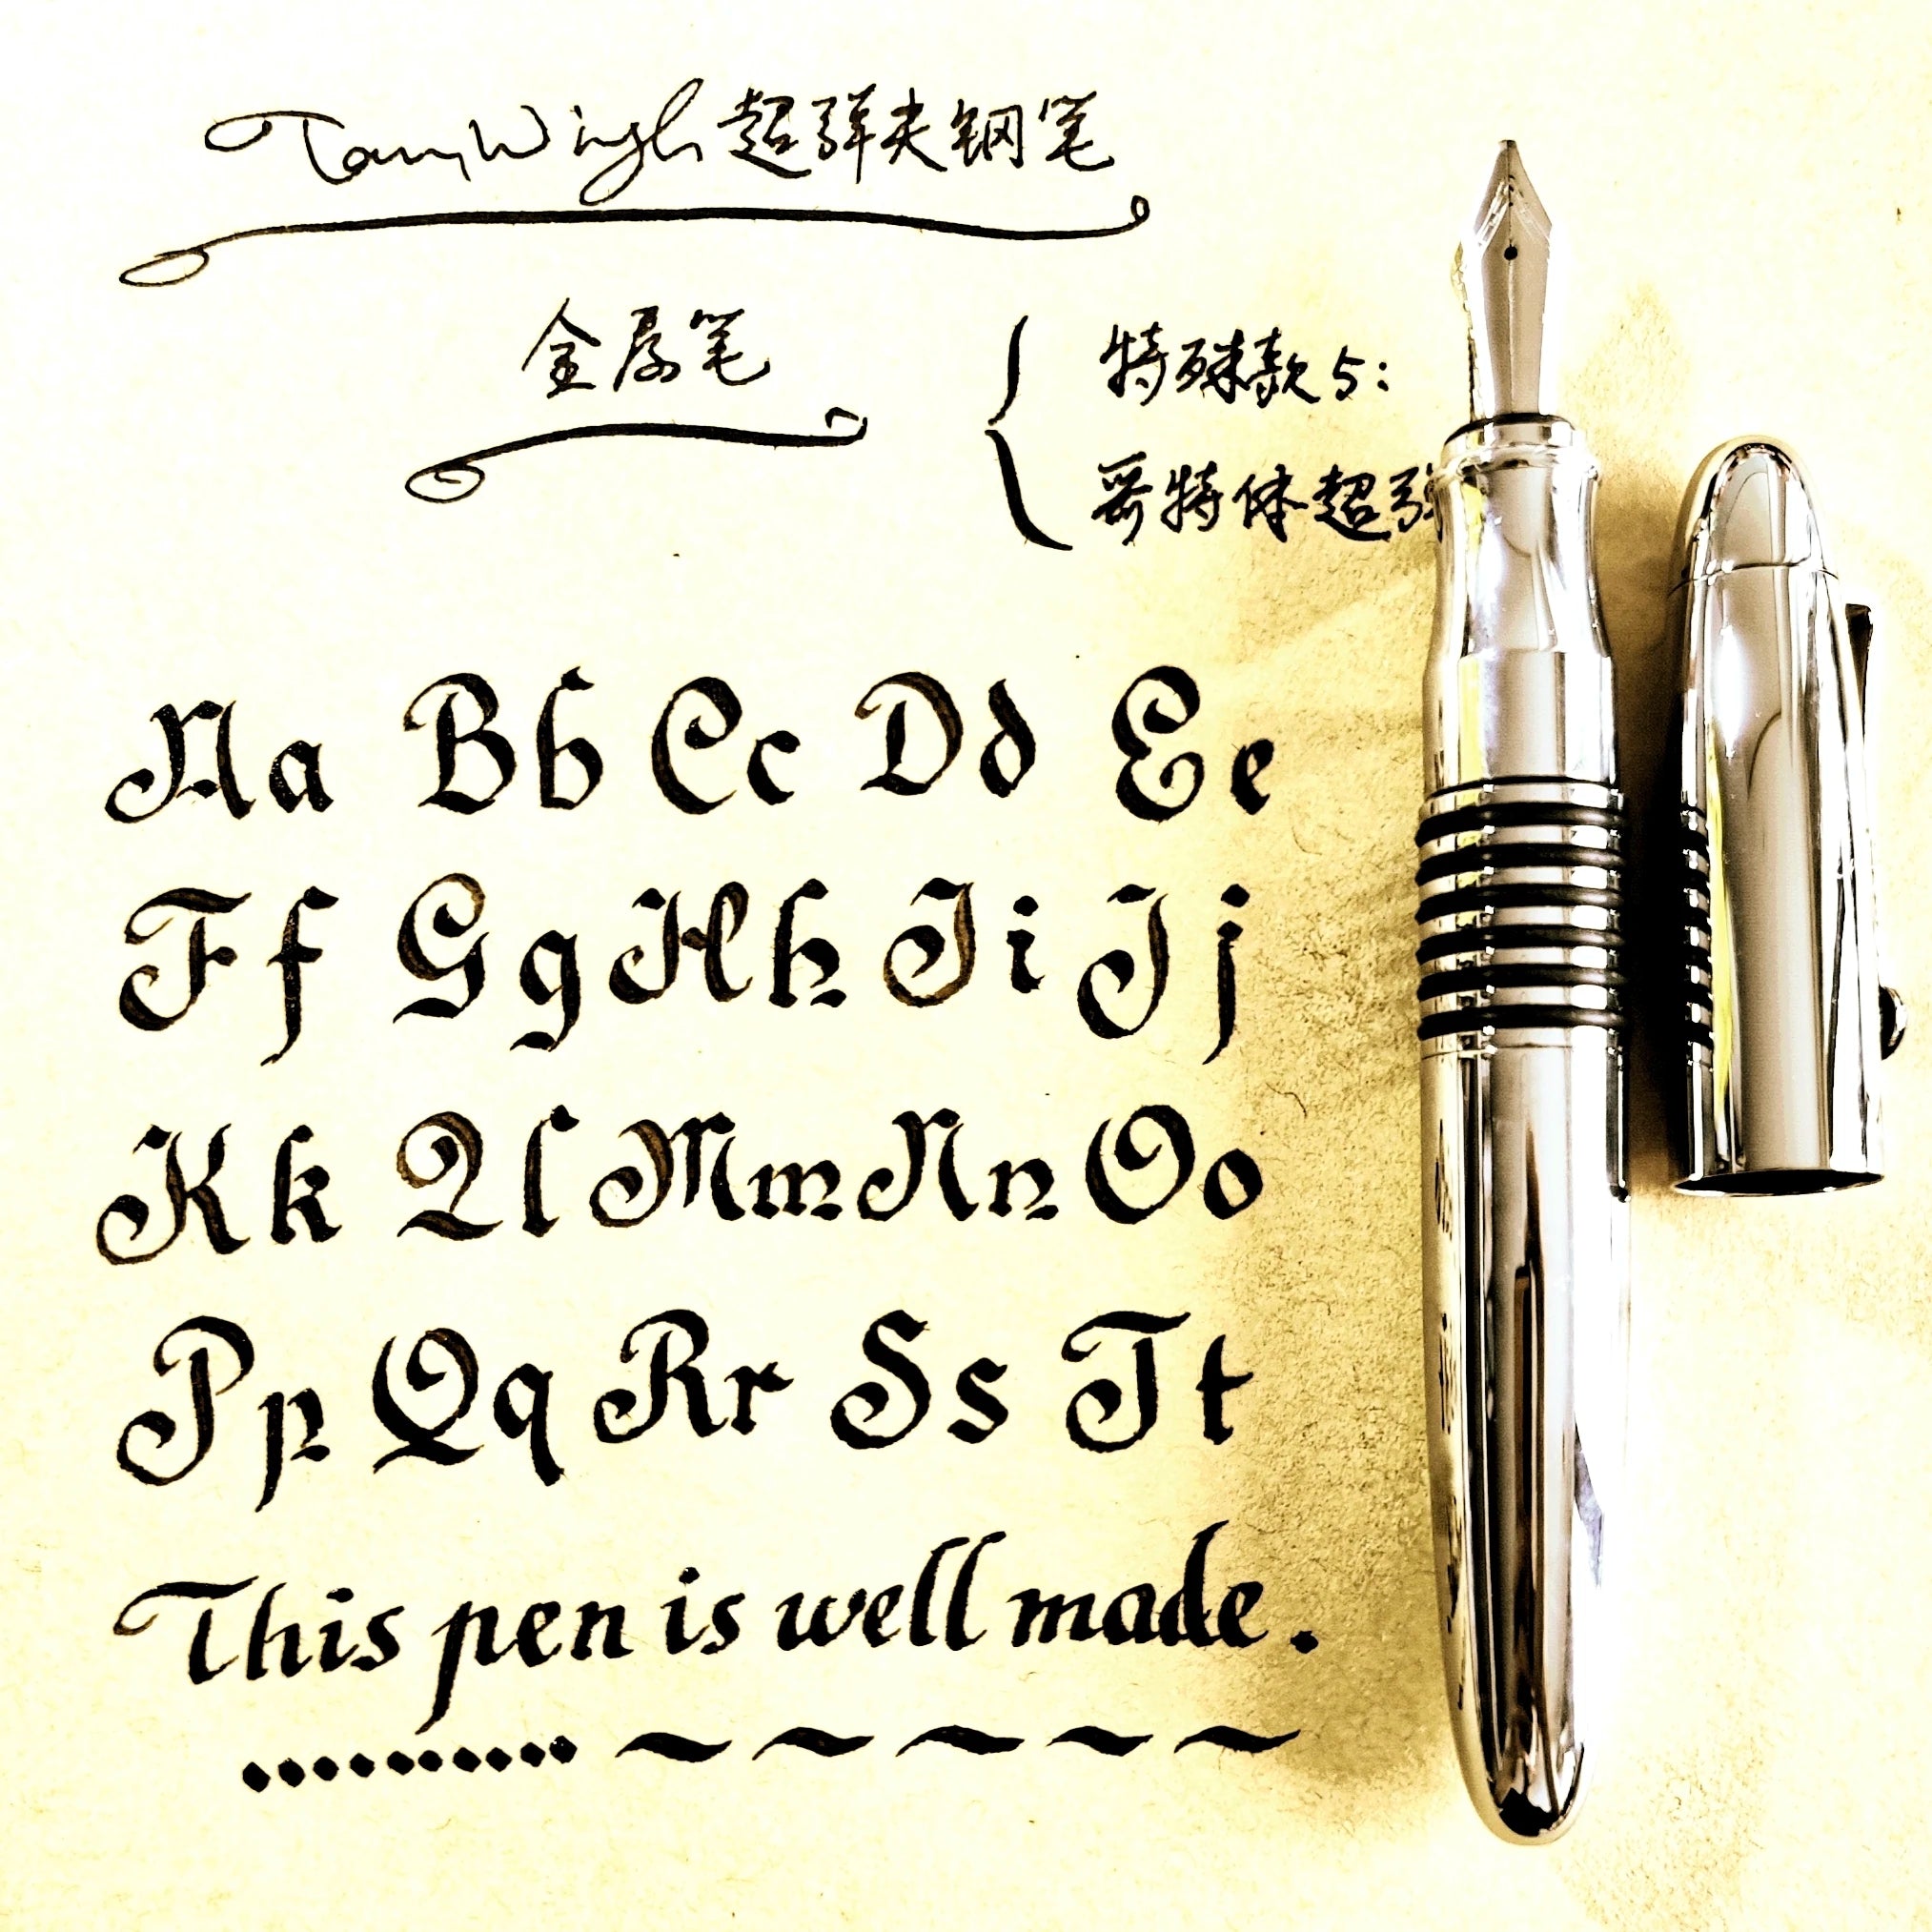 TanyWingh超弹尖钢笔
金属笔
特殊款5:
哥特体超弹
Aa Bb Cc Dd Ee
Ff Gg Hh Ii Jj
Kk Ll Mm Nn Oo
Pp Qq Rr Ss Tt
This pen is well made.